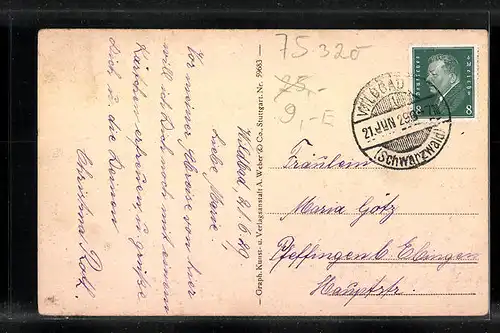 75320
25,-
9,-E
Deutsches Reich
8 8
WILDBAD
21.JUN 29
(Schwarzwald)
Wildbad, 21/6.29.
Liebe Marie.
Vor meiner Abreise von hier
will ich Dich noch mit einem
Kärtchen erfreuen, u. grüße
Dich, u. die Deinen
Christina Roth.
Graph. Kunst- u. Verlagsanstalt A. Weber & Co., Stuttgart. Nr. 59683
Fräulein
Maria Götz
Pfeffingen b. Ebingen
Hauptstr.